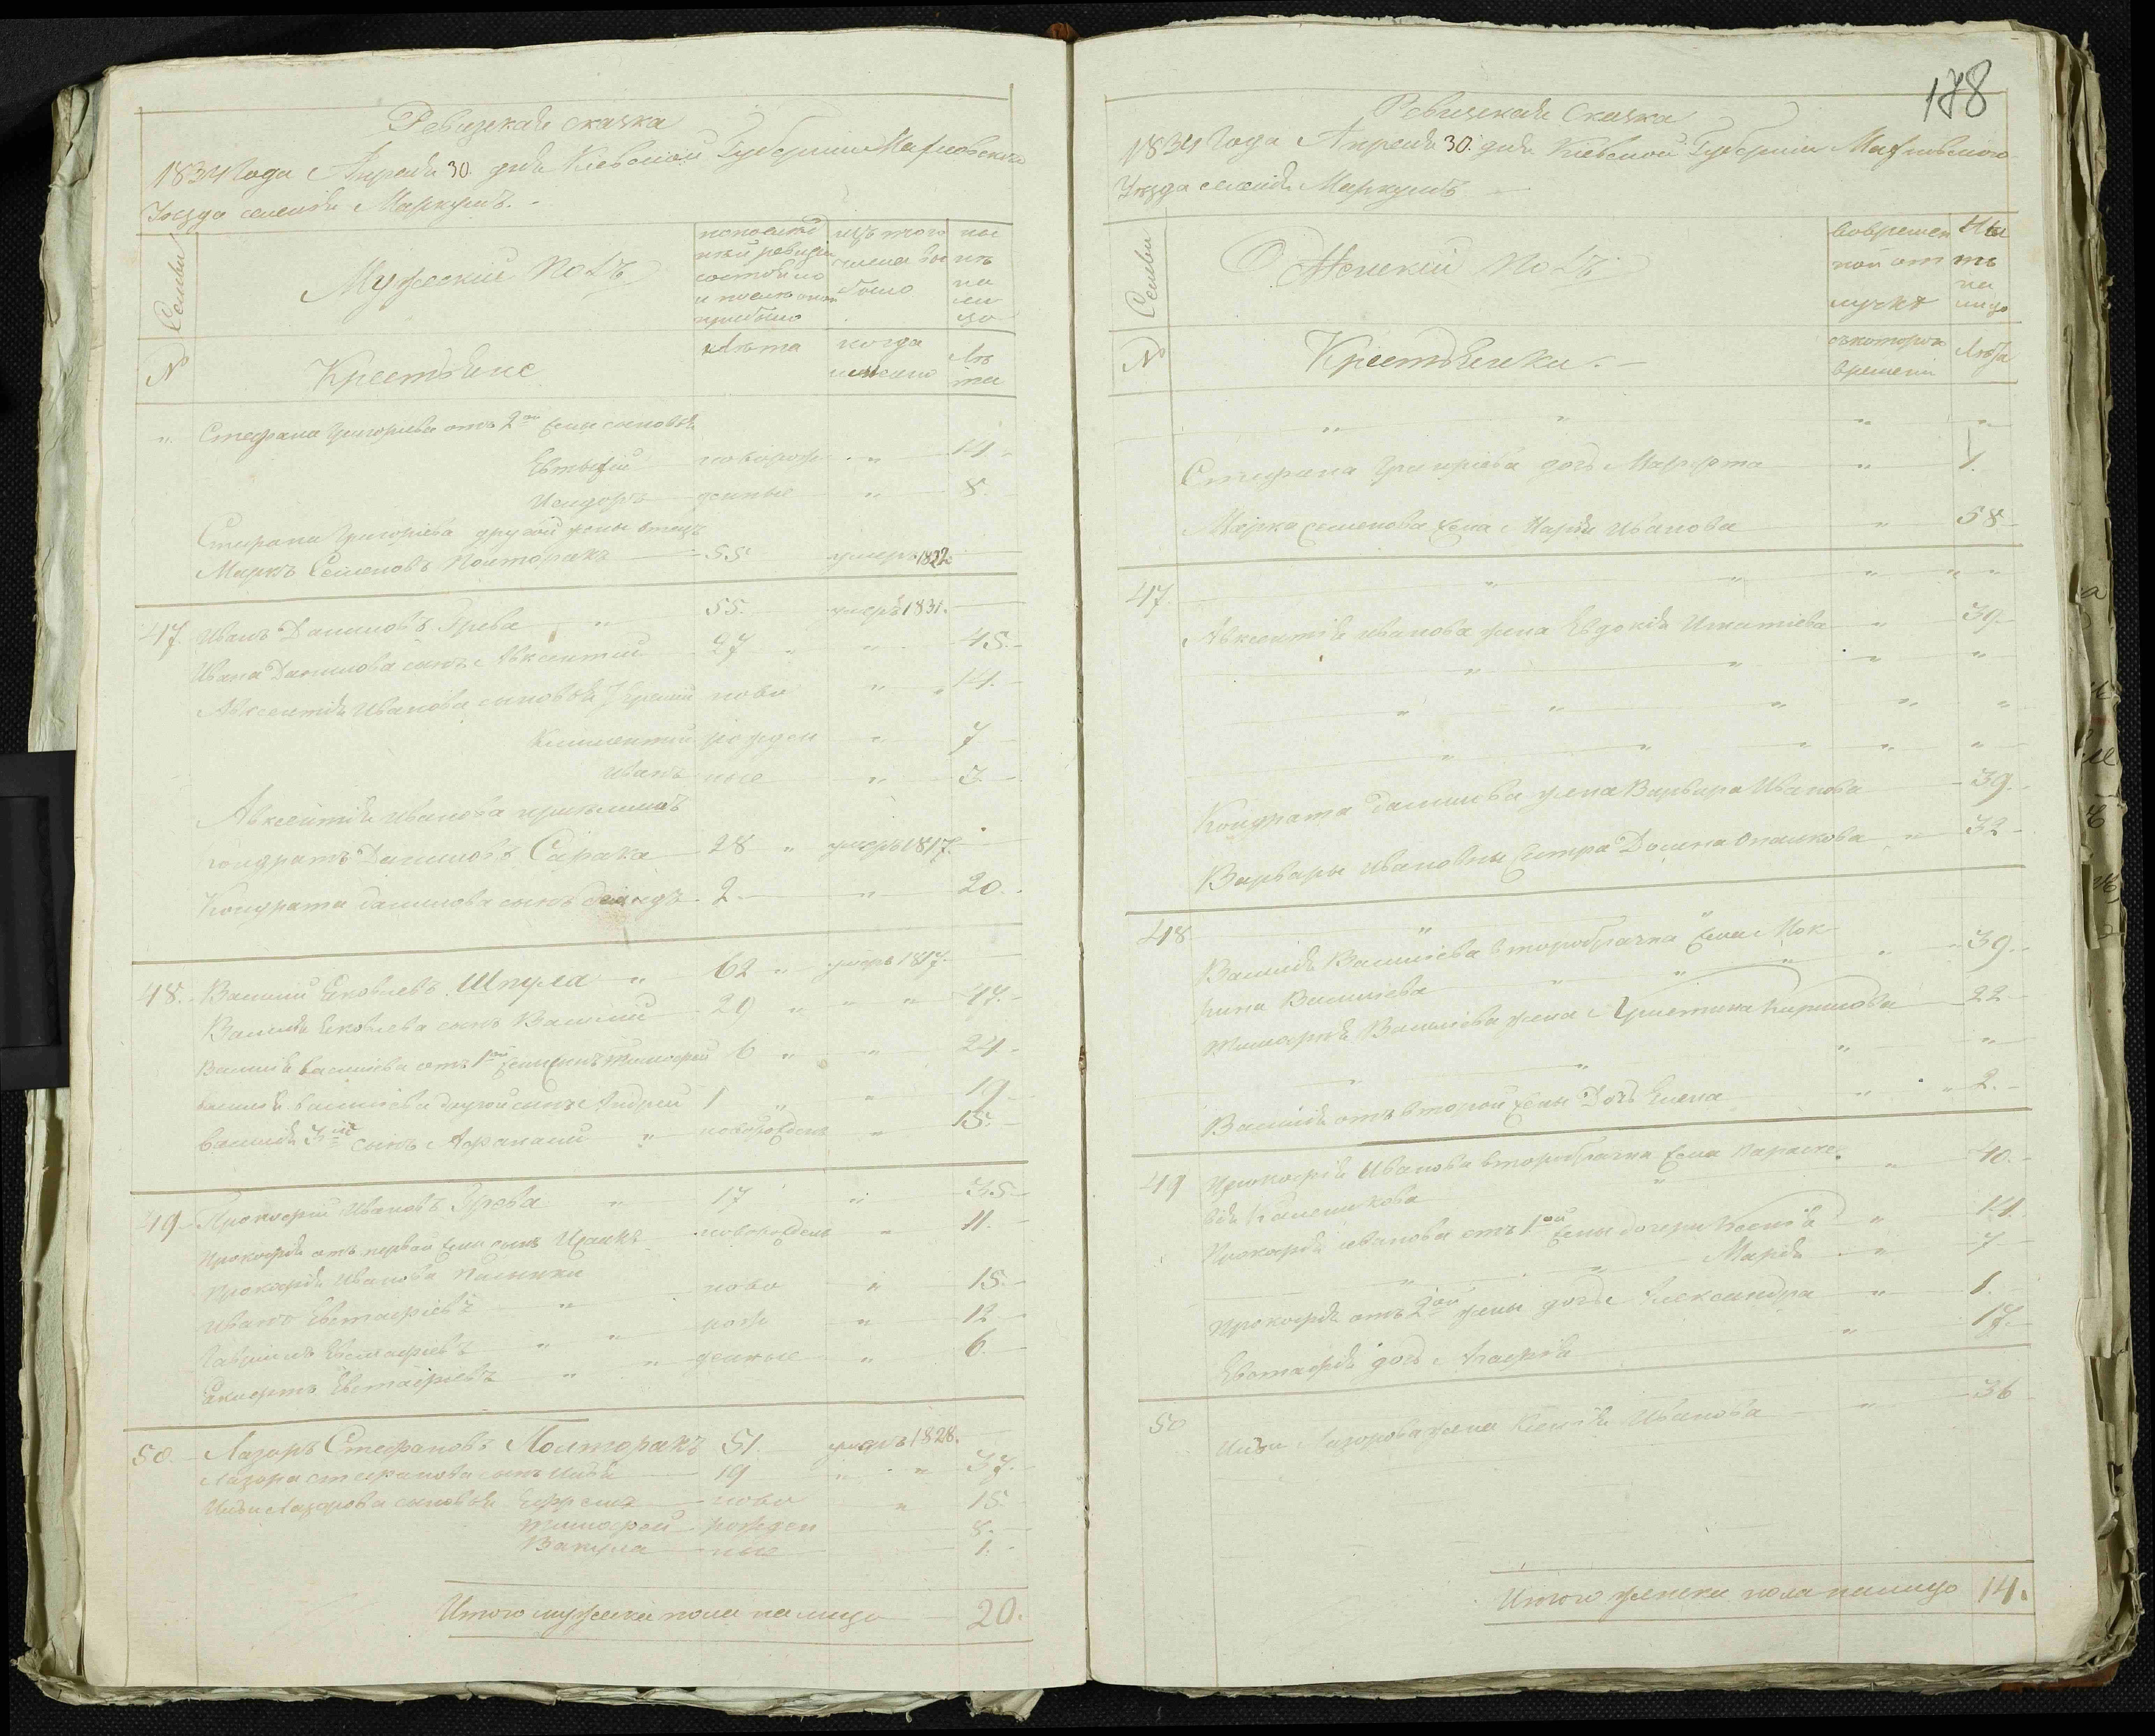 Ревизская сказка
1834 года Апреля 30 дня Киевской Губернии Махновского
Уезда селения Маркушъ.
Семьи
Мужеский полъ
по последней ревизiи состояло и после оной прибыло
изъ того числа выбыло
ныне на лицо
№
Крестьяне
Лета
когда именно
Лета
„ Стефана Григорьева отъ 2ой жены сыновья
Евтыхiй новорож „ 14
Исидоръ денные „ 8.
Стефана Григорiева другой жены отецъ
Марко Семеновъ Полторакъ 55 умеръ 1822
47 Иванъ Даниловъ Грева „ 55. умеръ 1831.
Ивана Данилова сынъ Авксентiй 27 „ 45.
Авксентiя Иванова сыновья Юрiй ново „ 14.
Климентiй рожден „ 7
Иванъ ные „ 3.
Авксентiя Иванова
Кондратъ Даниловъ Сарака 28 „ умеръ 1817.
Кондрата Данилова сынъ 2. „ 20.
48. Василiй Яковлевъ Шпула „ 62 „ умеръ 1817.
Василiя Яковлева сынъ Василiй 29 „ „ „ 47.
Василiя Василiева отъ 1ой жены сынъ Тимофей 6 „ „ 24.
Василiя Василiева другой сынъ Андрей 1 „ „ 19
Василiя 3й сынъ Афанасiй „ новорожденъ „ 15.
49. Прокофiй Ивановъ Грева „ 17 „ 35.
Прокофiя отъ первой жены сынъ новорожденъ „ 11.
Прокофiя Иванова
Иванъ Евстафiевъ „ ново „ 15.
Гаврiилъ Евстафiевъ „ „ рож „ 12
Евстафiевъ „ „ денные „ 6.
50. Лазоръ Стефановъ Полторакъ 51. умеръ 1828.
Лазора Стефанова сынъ Илья 19 „ „ 37.
Ильи Лазорова сыновья Ефремъ ново „ 15.
Тимофей рожден 8.
Вакула ные 1.
Итого мужеска пола на лицо 20.
178
Ревизская сказка
1834 года Апреля 30 дня Киевской Губернiи Махновского
Уезда селенiя Маркушъ
Семьи
Женскiй полъ
Во временной отлучке
Ныне на лицо
№
Крестьянки.
съ котораго времени
Лета
„ „ „ „
Стефана Григорiева дочь Марфа „ 1.
Марка Семенова жена Марiя Иванова „ 58
47. „ „ „ „ „
Авксентiя Иванова жена Евдокiя Игнатiева „ 39.
„ „ „ „
„ „ „ „ „
„ „ „ „ „
Кондрата Данилова жена Варвара Иванова 39.
Варвары Ивановны сестра Домна „ 32
48 „
Василiя Василiева второбрачна жена Мок-
рина Василiева „ „ „ „ 39.
Тимофея Василiева жена Христина Кирилова 22
„ „ „
Василiя отъ второй жены дочь Елена „ „ 2.
49 Прокофiя Иванова второбрачна жена Параске-
вiя „ „ 40.
Прокофiя Иванова отъ 1ой жены дочери Ксенiя „ 14
„ „ Марiя „ 7
Прокофiя отъ 2ой жены дочь Александра „ 1.
Евстафiя дочь Агафiя „ 17.
50 Ильи Лазорова жена Ксенiя Иванова „ 36
Итого женска пола налицо 14.